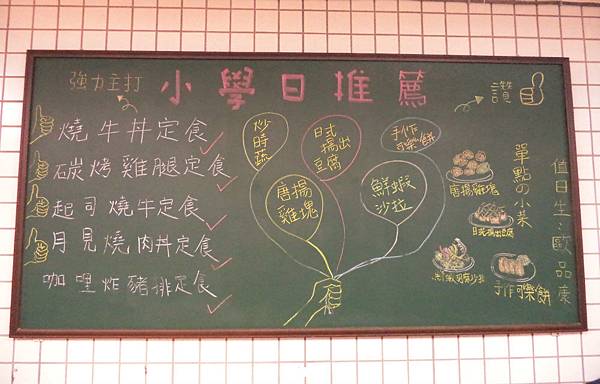 強力主打
小學日推薦
讚
燒牛丼定食
石炭烤雞腿定食
起司燒牛定食
月見燒肉丼定食
咖哩炸豬排定食
炒時蔬
日式揚出豆腐
手作可樂餅
唐揚雞塊
鮮蝦沙拉
單點の小菜
唐揚雞塊
日式揚出豆腐
手作可樂餅
值日生：歐品慶